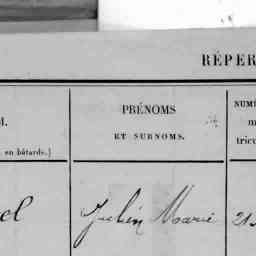 RÉPER
PRÉNOMS
ET SURNOMS.
NUMÉ
m
tricu
l.
en bâtards.)
el
Julien Marie
21